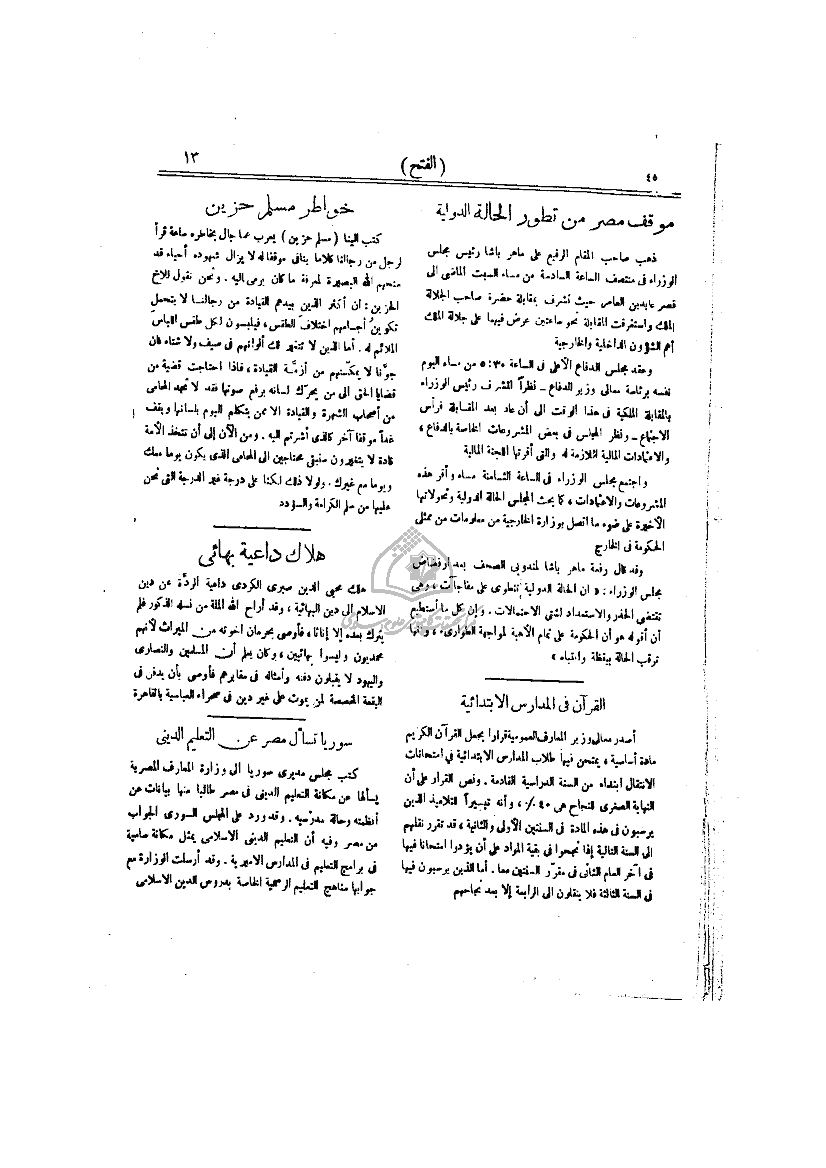 ٤٥
( الفتح )
١٣
موقف مصر من تطور الحالة الدولية
ذهب صاحب المقام الرفيع على ماهر باشا رئيس مجلس
الوزراء فى منتصف الساعة السادسة من مساء السبت الماضى الى
قصر عابدين العامر حيث تشرف بمقابلة حضرة صاحب الجلالة
الملك واستغرقت المقابلة نحو ساعتين عرض فيهما على جلالة الملك
أهم الشؤون الداخلية والخارجية
وعقد مجلس الدفاع الأعلى فى الساعة ٥:٣٠ من مساء اليوم
نفسه برئاسة معالى وزير الدفاع ــ نظراً لتشرف رئيس الوزراء
بالمقابلة الملكية فى هذا الوقت الى أن عاد بعد المقابلة فرأس
الاجتماع ــ ونظر المجلس فى بعض المشروعات الخاصة بالدفاع ،
والاعتمادات المالية اللازمة له والتى أقرتها اللجنة المالية
واجتمع مجلس الوزراء فى الساعة الثامنة مساء وأقر هذه
المشروعات والاعتمادات ، كما بحث المجلس الحالة الدولية وتحولاتها
الأخيرة على ضوء ما اتصل بوزارة الخارجية من معلومات من ممثلى
الحكومة فى الخارج
وقد قال رفعة ماهر باشا لمندوبى الصحف بعد ارفضاض
مجلس الوزراء : « ان الحالة الدولية تنطوى على مفاجآت ، وهى
تقتضى الحذر والاستعداد لشتى الاحتمالات . وإن كل ما أستطيع
أن أقوله هو أن الحكومة على تمام الأهبة لمواجهة الطوارىء ، وانها
ترقب الحالة بيقظة وانتباه »
القرآن فى المدارس الابتدائية
أصدر معالى وزير المعارف العمومية قرارا بجعل القرآن الكريم
مادة أساسية ، يمتحن فيها طلاب المدارس الابتدائية فى امتحانات
الانتقال ابتداء من السنة الدراسية القادمة . ونص القرار على أن
النهاية الصغرى للنجاح هى ٤٠٪ ، وأنه تيسيراً للتلاميذ الذين
يرسبون فى هذه المادة فى السنتين الأولى والثانية ، قد تقرر نقلهم
الى السنة التالية إذا نجحوا فى بقية المواد على أن يؤدوا امتحانا فيها
فى آخر العام الثانى فى مقرّر السنتين معا . أما الذين يرسبون فيها
فى السنة الثالثة فلا ينقلون الى الرابعة إلا بعد نجاحهم
خواطر مسلم حزين
كتب الينا ( مسلم حزين ) يعرب عما جال بخاطره ساعة قرأ
لرجل من رجالنا كلاما ينافى موقفا له لا يزال شهوده أحياء قد
منحهم الله البصيرة لمعرفة ما كان يرمى اليه . ونحن نقول للاخ
الحزين : أن أكثر الذين بيدهم القيادة من رجالنا لا يتحمل
تكوين أجسامهم اختلاف الطقس ، فيلبسون لكل طقس اللباس
الملائم له . أما الذين لا تتغير لك ألوانهم فى صيف ولا شتاء فان
جوّنا لا يمكّنهم من أزمّة القيادة ، فاذا احتاجت قضية من
قضايا الحق الى من يحرّك لسانه برفع صوتها فقد لا تجد المحامى
من أصحاب الشهرة والقيادة الا ممن يتكلم اليوم بلسانها ويقف
غداً موقفا آخر كالذى أشرتم اليه . ومن الآن إلى أن تتخذ الأمة
قادة لا يتغيرون سنبقى محتاجين الى المحامى الذى يكون يوما معك
ويوما مع غيرك . ولولا ذلك لكنا على درجة غير الدرجة التى نحن
عليها من سلم الكرامة والسؤدد
هلاك داعية بهائى
هلك محيى الدين صبرى الكردى داعية الردّة عن دين
الاسلام الى دين البهائية ، وقد أراح الله الملة من نسله الذكور فلم
يترك بعده إلا إناثا ، فأوصى بحرمان اخوته من الميراث لأنهم
محمديون وليسوا بهائيين ، وكان يعلم أن المسلمين والنصارى
واليهود لا يقبلون دفنه وأمثاله فى مقابرهم فأوصى بأن يدفن فى
البقعة المخصصة لمن يموت على غير دين فى صحراء العباسية بالقاهرة
سوريا تسأل مصر عن التعليم الدينى
كتب مجلس مديرى سوريا الى وزارة المعارف المصرية
يسألها عن مكانة التعليم الدينى فى مصر طالبا منها بيانات عن
أنظمته وحالة مدرّسيه . وقد ورد على المجلس السورى الجواب
من مصر وفيه أن التعليم الدينى الاسلامى يمثل مكانة سامية
فى برامج التعليم فى المدارس الاميرية . وقد أرسلت الوزارة مع
جوابها مناهج التعليم الرسمية الخاصة بدروس الدين الاسلامى